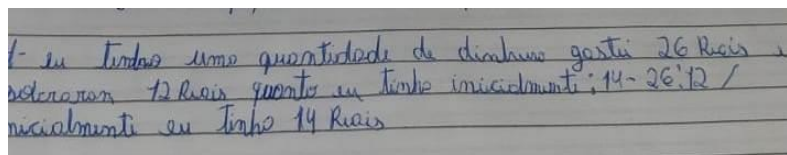 1- eu tinha uma quantidade de dinheiro gastei 26 Reais e
sobraram 12 Reais quanto eu tinha inicialmente; 14- 26:12 /
nicialmente eu tinho 14 Reais